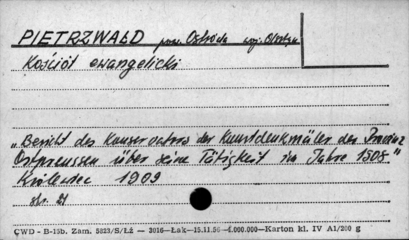 PIETRZWAŁD pow. Ostróda woj. Olsztyn
Kościół ewangelicki
„Bericht des Konservators der Kunstdenkmäler der Provinz
Ostpreussen über seine Tätigkeit im Jahre 1908"
Królewiec 1909
str. 21
CWD - B-15b. Zam. 5823/S/Łż — 3016—Łak—15.11.56 —1.000.000—Karton kl. IV A1/200 g